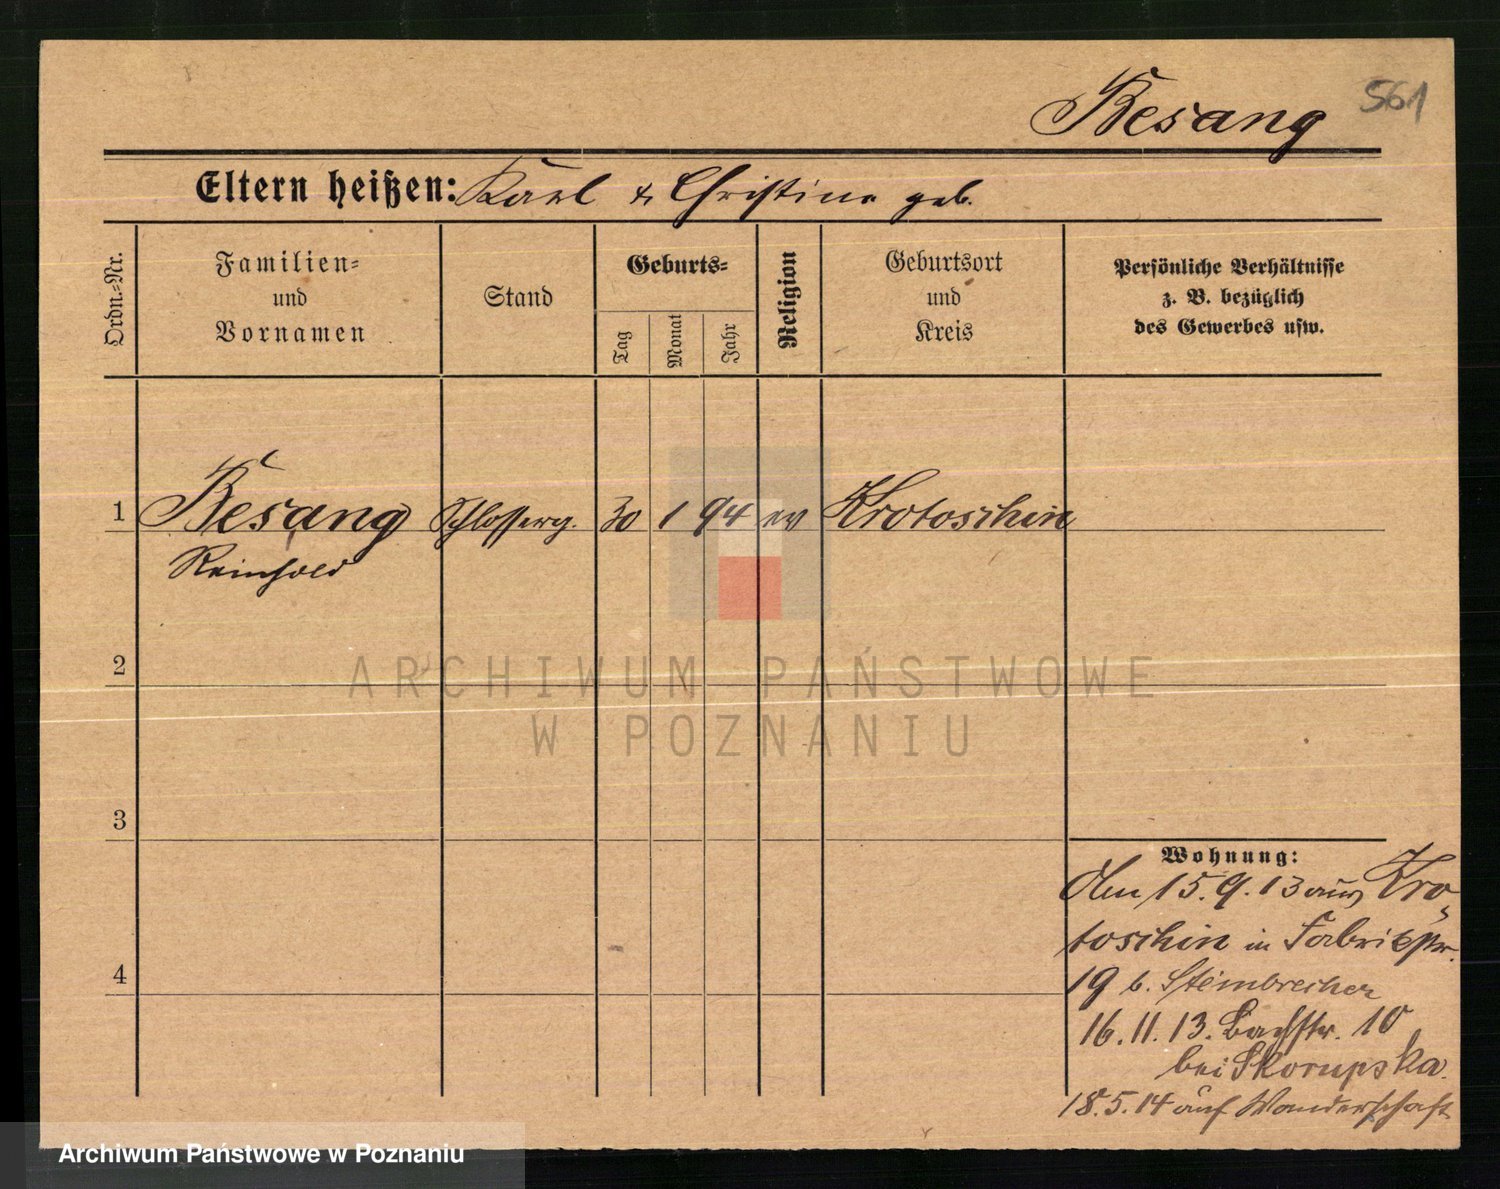 Besang 561
Eltern heißen: Karl & Christine geb.
Ordn.-Nr.
Familien-
und
Vornamen
Stand
Geburts-
Tag
Monat
Jahr
Religion
Geburtsort
und
Kreis
Persönliche Verhältnisse
z. B. bezüglich
des Gewerbes usw.
1 Besang Schlosserg. 30 1 94 ev Krotoschin
Reinhold
2
ARCHIWUM PAŃSTWOWE
W POZNANIU
3
Wohnung:
Den 15.9.13 aus Kro-
toschin in Fabrikstr.
4
19 b. Steinbrecher
16.11.13. Bachstr. 10
bei Skorupska.
18.5.14 auf Wanderschaft
Archiwum Państwowe w Poznaniu